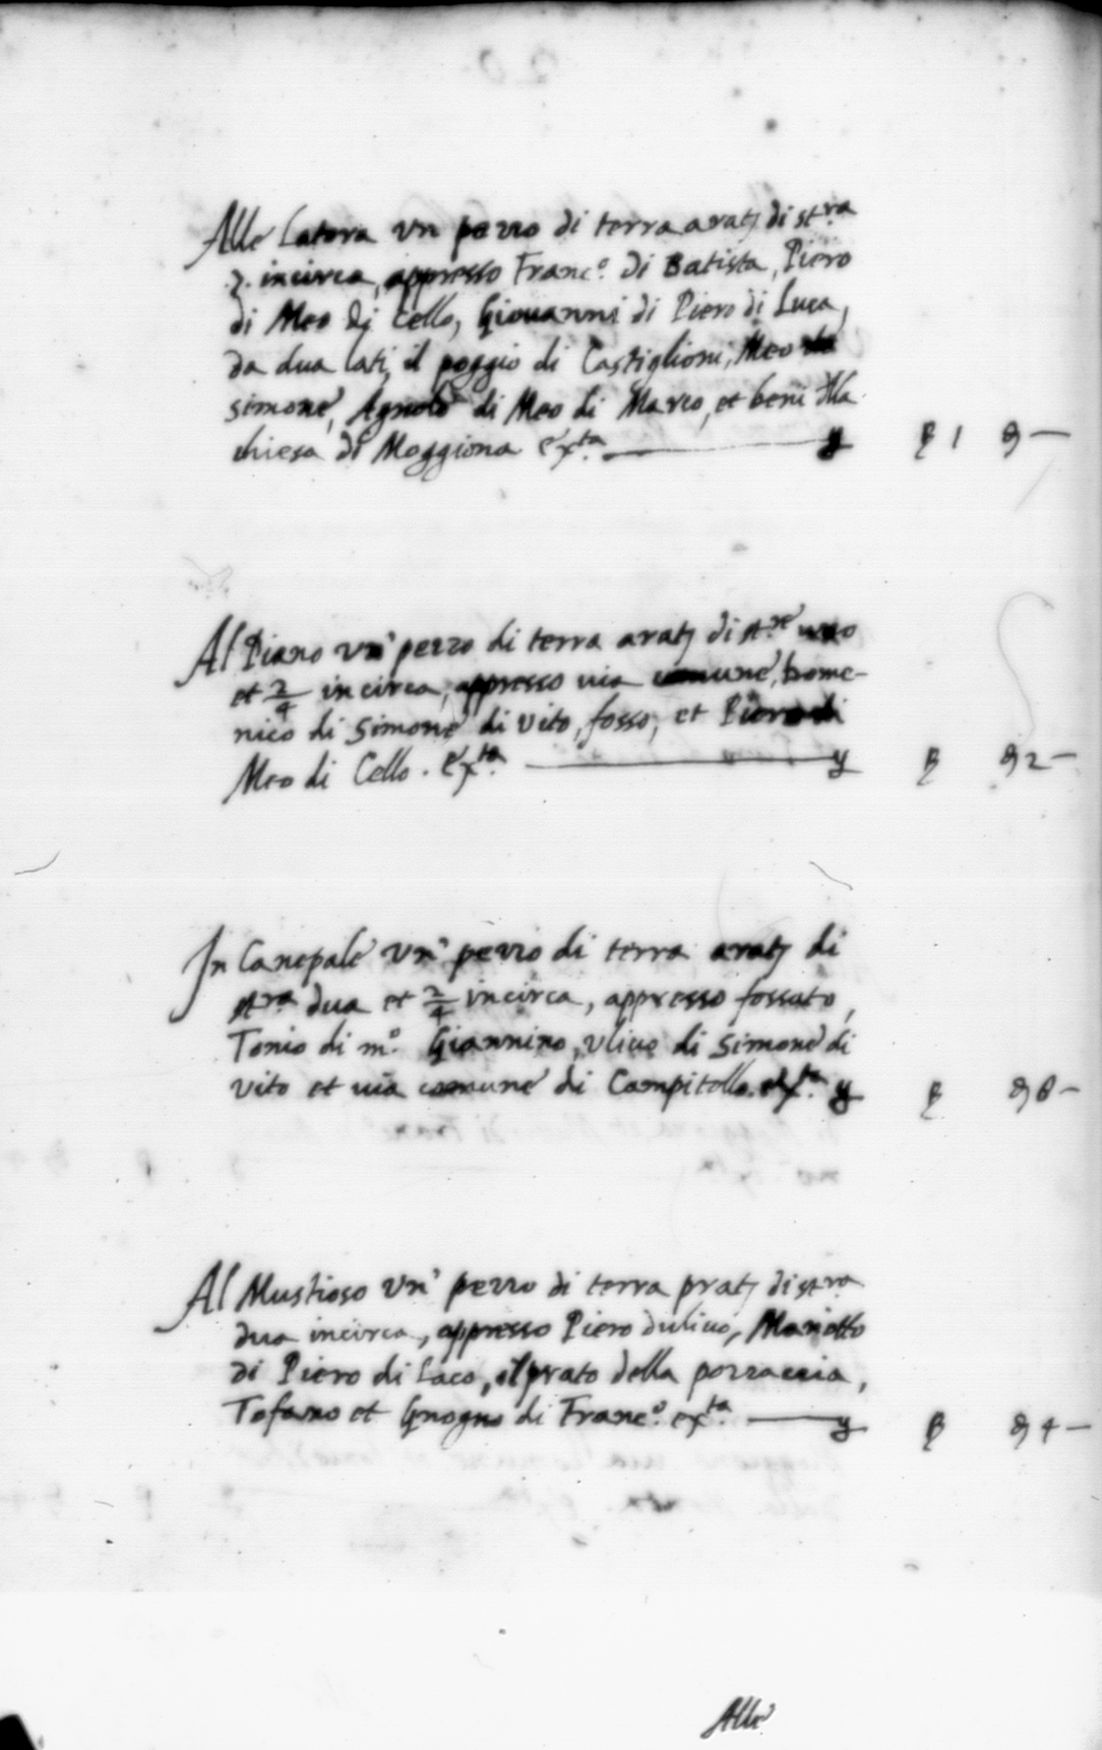 Alle Latora un pezzo di terra arat. di st.ra
.7. incirca, appresso Franc.o di Batista, Piero
di Meo di Cello, Giouanni di Piero di Luca,
da dua lati, il poggio di Castiglioni, Meo
simone, Agnolo di Meo di Marco, et beni della
chiesa di Moggiona ex.ta
Al Piano un pezzo di terra arat. di st.re uno
et 2/4 incirca, appresso uia comune, Dome-
nico di Simone di Vito, fosso, et Piero di
Meo di Cello. ex.ta
In Canepale un pezzo di terra arat. di
st.ra dua et 2/4 incirca, appresso fossato,
Tonio di m.o Giannino, Vliuo di Simone di
Vito et uia comune di Campitello. ex.ta
Al Mustioso un pezzo di terra prat. di st.ra
dua incirca, appresso Piero duliuo, Mariotto
di Piero di Laco, il prato della pozzaccia,
Tofano et Gnogno di Franc.o ex.ta
Alle